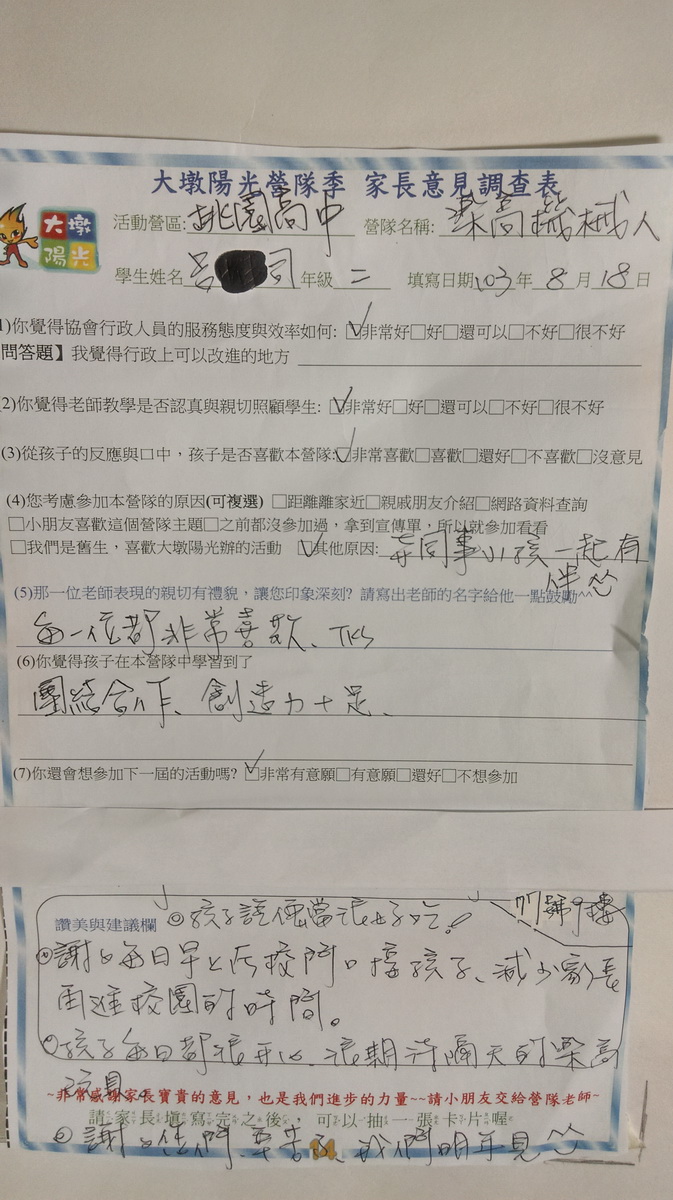 大墩陽光營隊季 家長意見調查表
大墩
陽光
活動營區:桃園高中 營隊名稱:樂高機械人
學生姓名呂 司年級二 填寫日期103年8月18日
1)你覺得協會行政人員的服務態度與效率如何:☑非常好□好□還可以□不好□很不好
問答題】我覺得行政上可以改進的地方
(2)你覺得老師教學是否認真與親切照顧學生:☑非常好□好□還可以□不好□很不好
(3)從孩子的反應與口中，孩子是否喜歡本營隊:☑非常喜歡□喜歡□還好□不喜歡□沒意見
(4)您考慮參加本營隊的原因(可複選) □距離離家近□親戚朋友介紹□網路資料查詢
□小朋友喜歡這個營隊主題□之前都沒參加過，拿到宣傳單，所以就參加看看
□我們是舊生，喜歡大墩陽光辦的活動 ☑其他原因:弄同事小孩一起有
伴
(5)那一位老師表現的親切有禮貌，讓您印象深刻? 請寫出老師的名字給他一點鼓勵^^
每一位都非常喜歡、TKS
(6)你覺得孩子在本營隊中學習到了
團結合作、創造力十足、
(7)你還會想參加下一屆的活動嗎? ☑非常有意願□有意願□還好□不想參加
77號9樓
讚美與建議欄 ◎孩子說便當很好吃!
◎謝謝每日早上在校門口接孩子、減少家長
再進校園的時間。
◎孩子每日都很開心、很期待隔天的樂高
玩具。
~非常感謝家長寶貴的意見，也是我們進步的力量~~請小朋友交給營隊老師~
請家長填寫完之後，可以抽一張卡片喔
◎謝謝你們、辛苦了、我們明年見